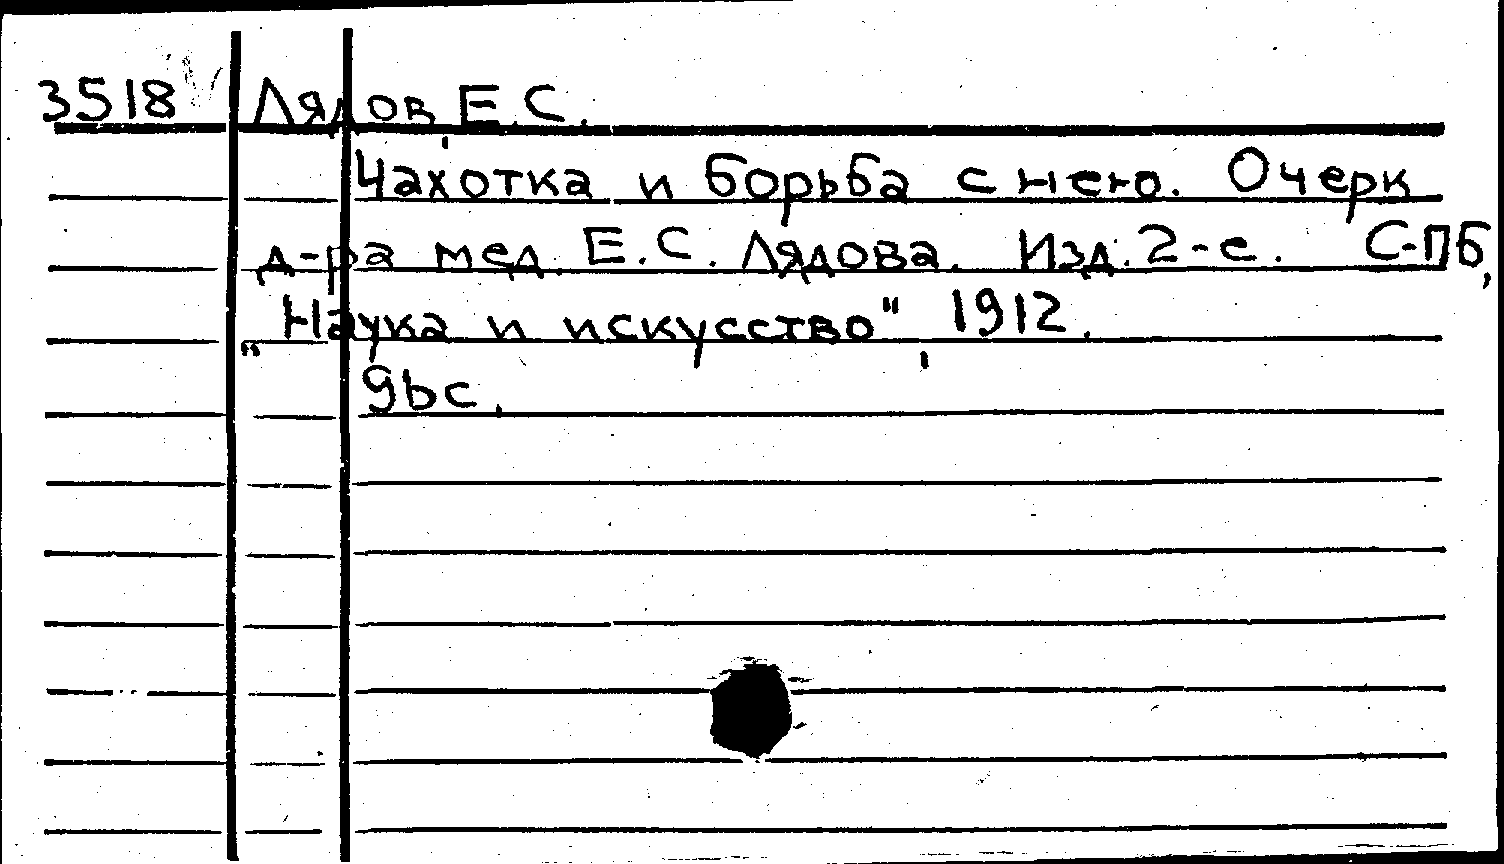 3518 Лядов, Е.С.
Чахотка и борьба с нею. Очерк
д-ра мед. Е.С. Лядова. Изд. 2-е. С-ПБ,
„Наука и искусство", 1912.
96с.